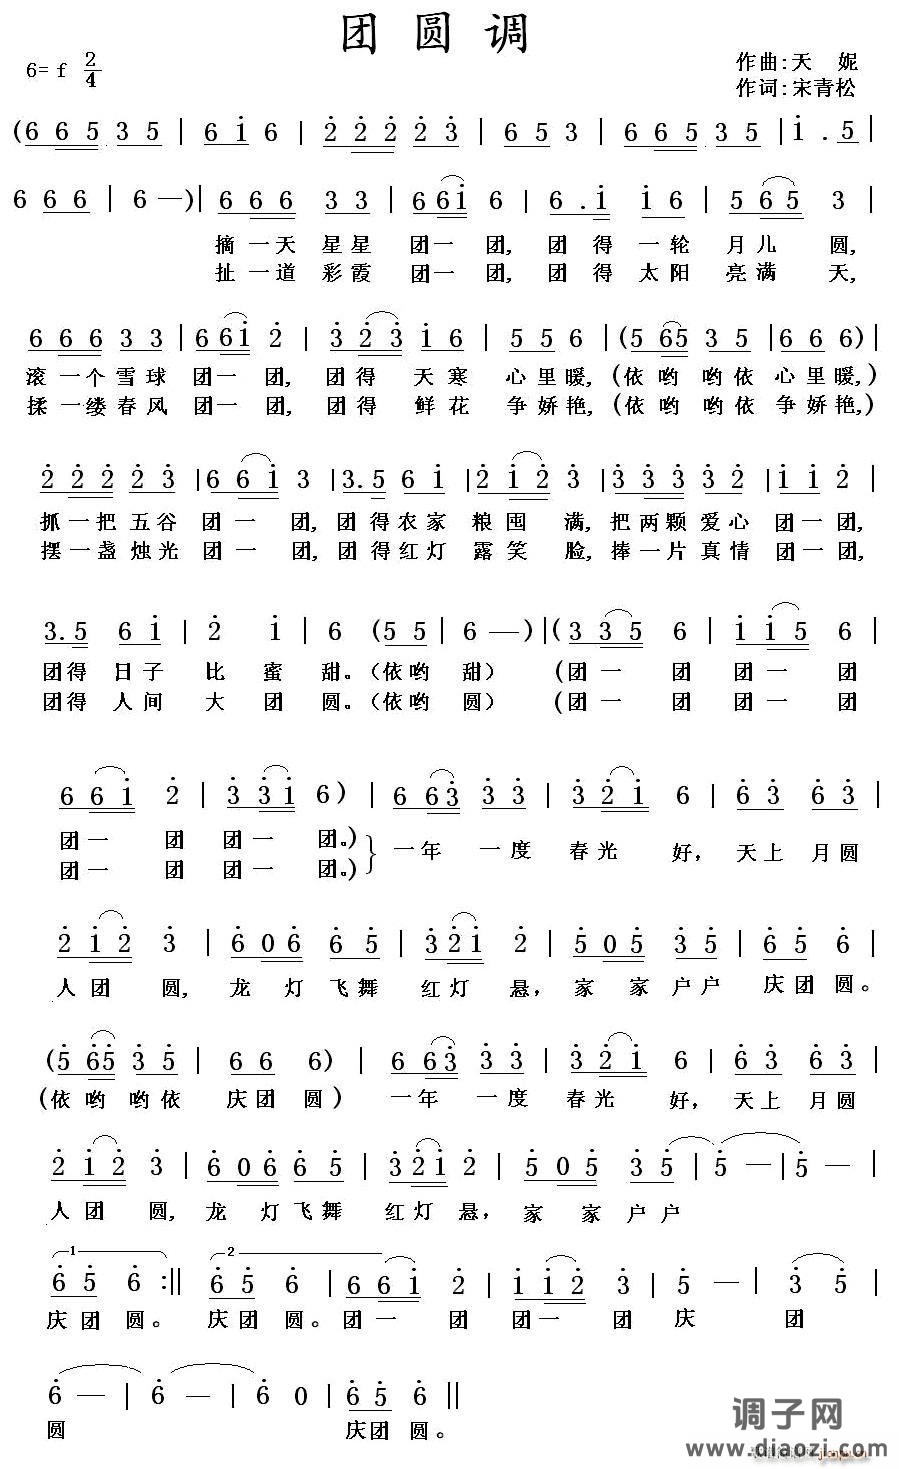 团 圆 调
6= f 2/4
作曲:天 妮
作词:宋青松
(6 6 5 3 5 | 6 i 6 | 2 2 2 2 3 | 6 5 5 | 6 6 5 3 5 | i . 5 |
6 6 6 | 6 —)| 6 6 6 3 3 | 6 6 i 6 | 6 . i i 6 | 5 6 5 3 |
摘 一 天 星 星 团 一 团, 团 得 一 轮 月 儿 圆,
扯 一 道 彩 霞 团 一 团, 团 得 太 阳 亮 满 天,
6 6 6 3 3 | 6 6 i 2 | 3 2 3 i 6 | 5 5 6 | (5 6 5 3 5 | 6 6 6) |
滚 一 个 雪 球 团 一 团, 团 得 天 寒 心 里 暖, (依 哟 哟 依 心 里 暖,)
揉 一 缕 春 风 团 一 团, 团 得 鲜 花 争 娇 艳, (依 哟 哟 依 争 娇 艳,)
2 2 2 2 3 | 6 6 i 3 | 3. 5 6 i | 2 i 2 3 | 3 3 3 3 2 | i i 2 |
抓 一 把 五 谷 团 一 团, 团 得 农 家 粮 囤 满, 把 两 颗 爱 心 团 一 团,
摆 一 盏 烛 光 团 一 团, 团 得 红 灯 露 笑 脸, 捧 一 片 真 情 团 一 团,
3. 5 6 i | 2 i | 6 (5 5 | 6 —)|(3 3 5 6 | i i 5 6 |
团 得 日 子 比 蜜 甜。(依 哟 甜) (团 一 团 团 一 团
团 得 人 间 大 团 圆。(依 哟 圆) (团 一 团 团 一 团
6 6 i 2 | 3 3 i 6 ) | 6 6 3 3 3 | 3 2 i 6 | 6 3 6 3 |
团 一 团 团 一 团。)
一 年 一 度 春 光 好, 天 上 月 圆
团 一 团 团 一 团。)
2 i 2 3 | 6 0 6 6 5 | 3 2 i 2 | 5 0 5 3 5 | 6 5 6 |
人 团 圆, 龙 灯 飞 舞 红 灯 悬, 家 家 户 户 庆 团 圆。
(5 6 5 3 5 | 6 6 6) | 6 6 3 3 3 | 3 2 i 6 | 6 3 6 3 |
(依 哟 哟 依 庆 团 圆) 一 年 一 度 春 光 好, 天 上 月 圆
2 i 2 3 | 6 0 6 6 5 | 3 2 i 2 | 5 0 5 3 5 | 5 — | 5 — |
人 团 圆, 龙 灯 飞 舞 红 灯 悬, 家 家 户 户
1 2
6 5 6 :|| 6 5 6 | 6 6 i 2 | i i 2 3 | 5 — | 3 5 |
庆 团 圆。 庆 团 圆。 团 一 团 团 一 团 庆 团
6 — | 6 — | 6 0 | 6 5 6 ||
圆 庆 团 圆。
调子网
www.diaozi.com